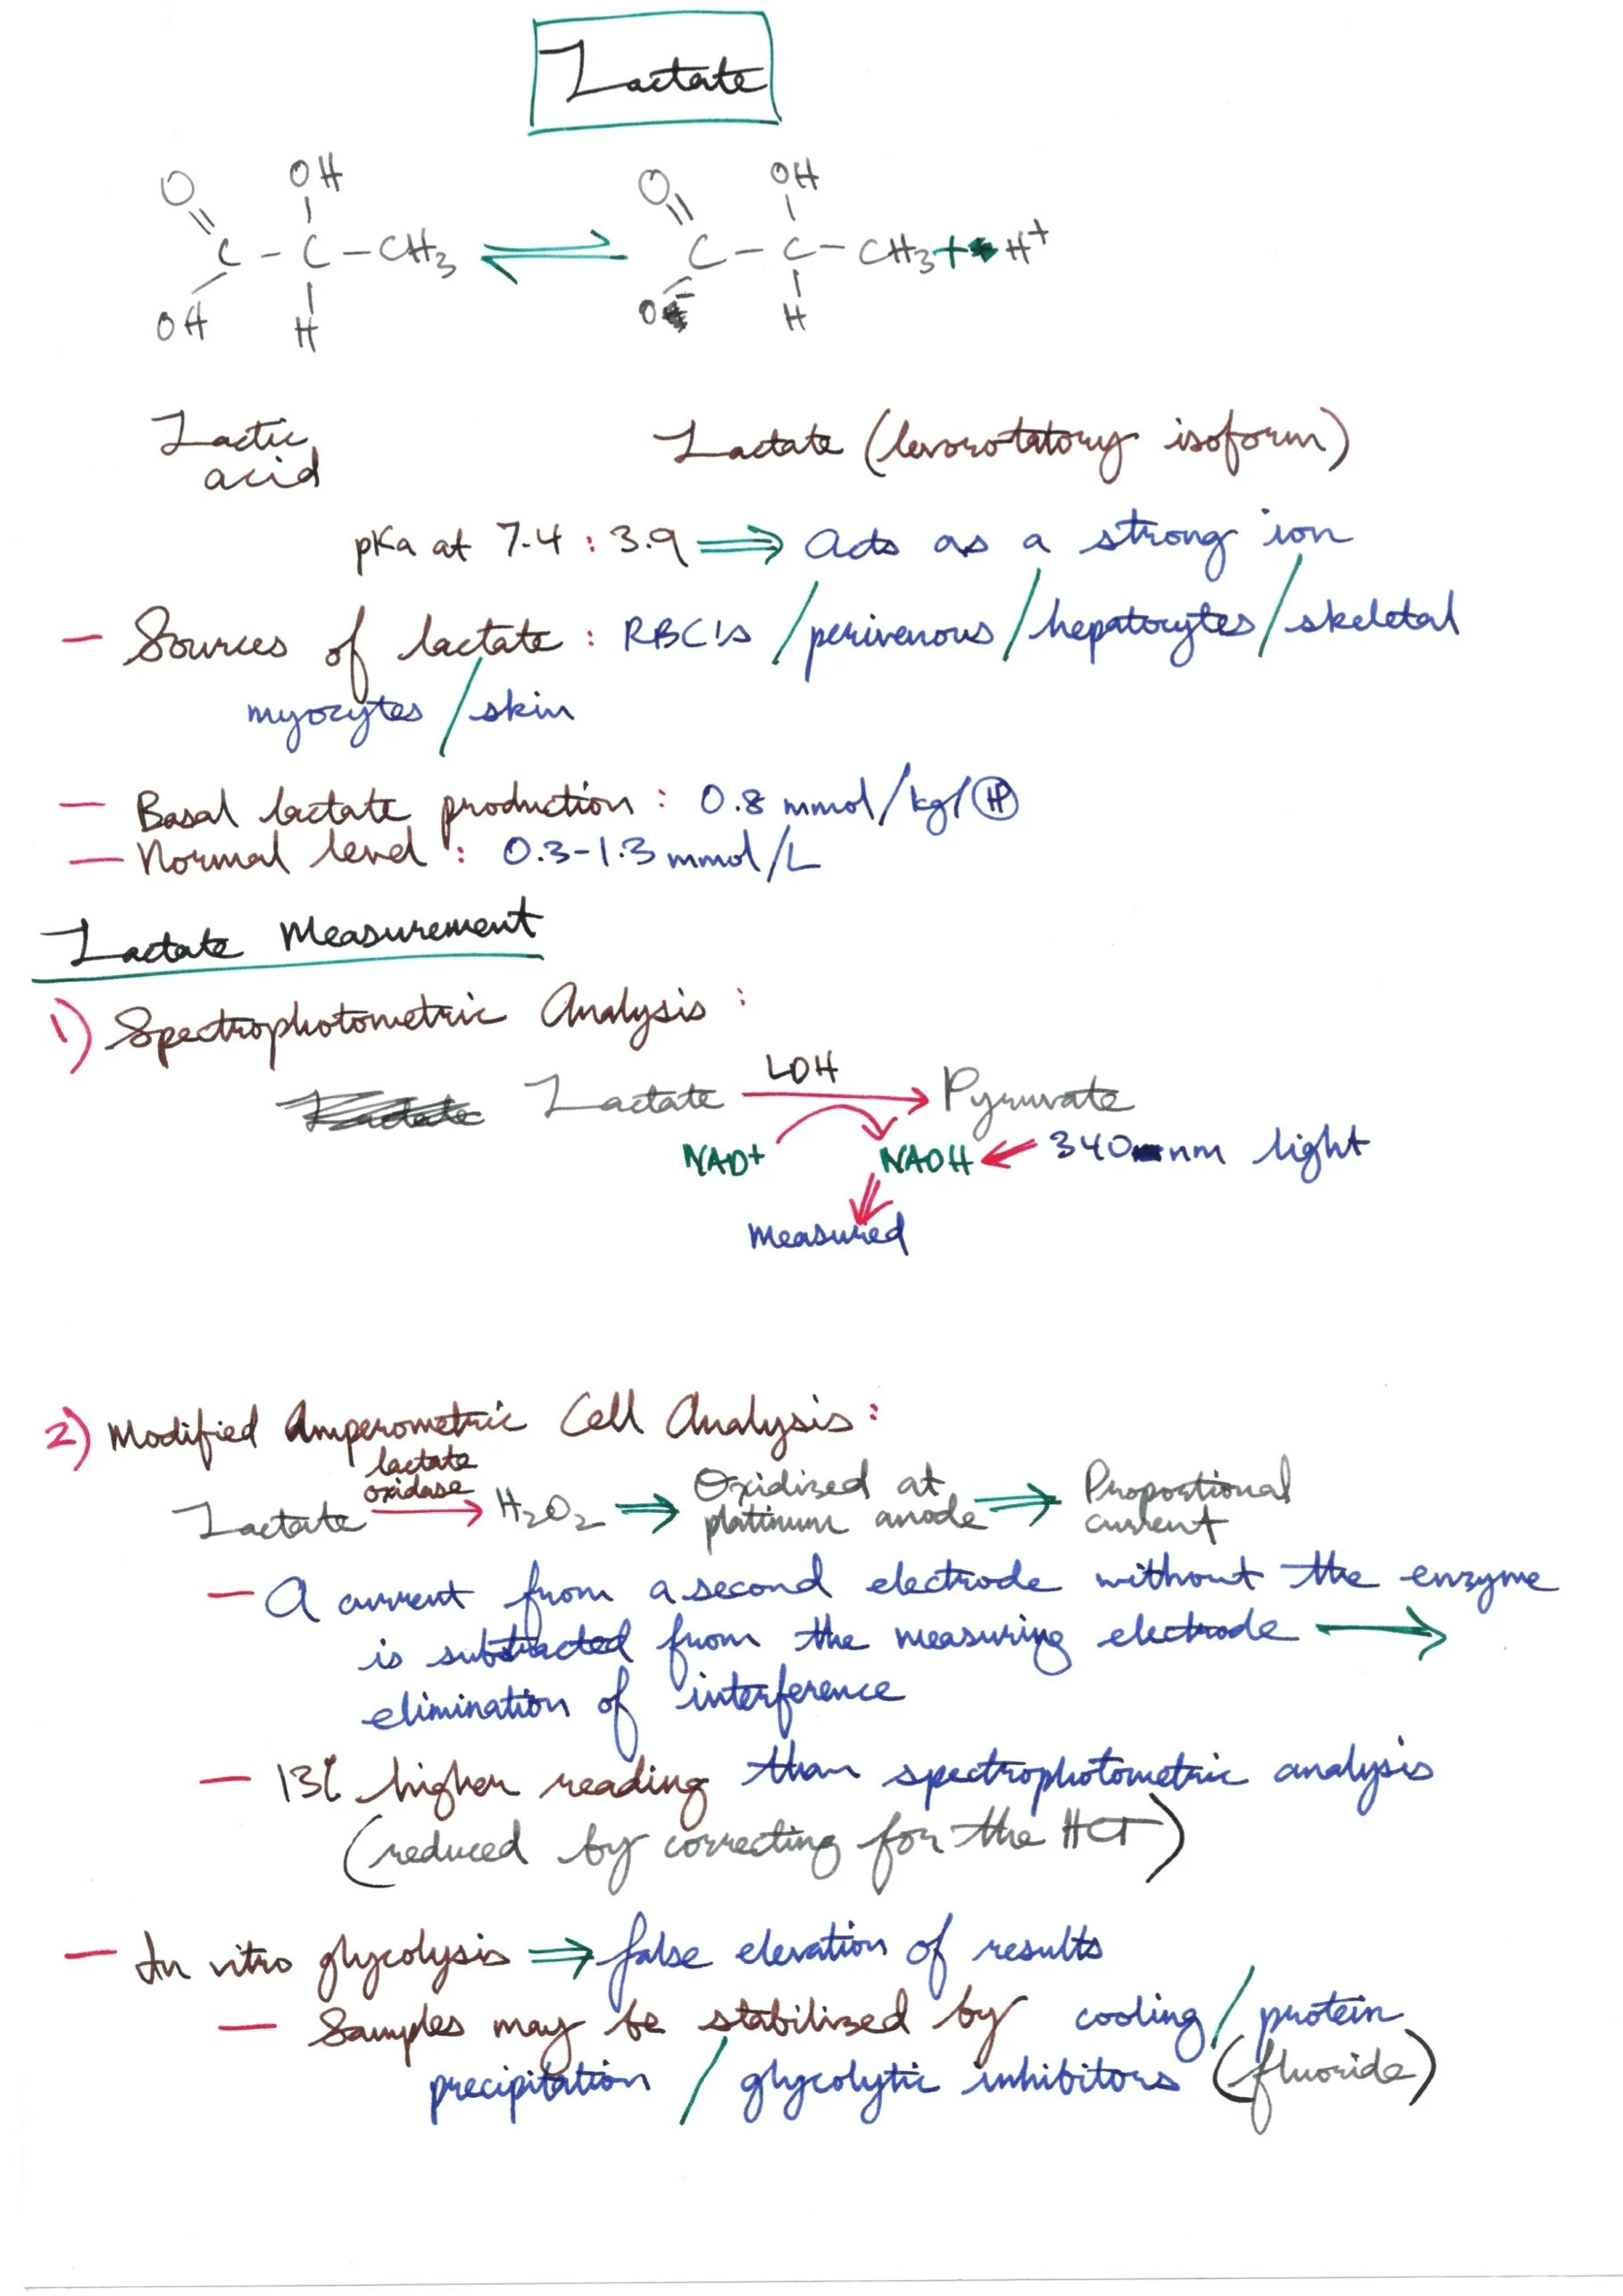 Lactate
O OH O OH
C - C - CH3 ⇌ C - C - CH3 + H+
OH H O- H
Lactic Lactate (levorotatory isoform)
acid
pKa at 7.4 : 3.9 ⇒ Acts as a strong ion
- Sources of lactate : RBC's / perivenous / hepatocytes / skeletal
myocytes / skin
- Basal lactate production : 0.8 mmol/kg/H
- Normal level : 0.3-1.3 mmol/L
Lactate Measurement
1) Spectrophotometric Analysis :
LDH
Lactate → Pyruvate
NAD+ NADH ← 340 nm light
Measured
2) Modified Amperometric Cell Analysis :
lactate
oxidase
Lactate → H2O2 ⇒ Oxidized at platinum anode ⇒ Proportional current
- A current from a second electrode without the enzyme
is subtracted from the measuring electrode →
elimination of interference
- 13% higher reading than spectrophotometric analysis
(reduced by correcting for the HCT)
- In vitro glycolysis ⇒ false elevation of results
- Samples may be stabilized by cooling / protein
precipitation / glycolytic inhibitors (fluoride)